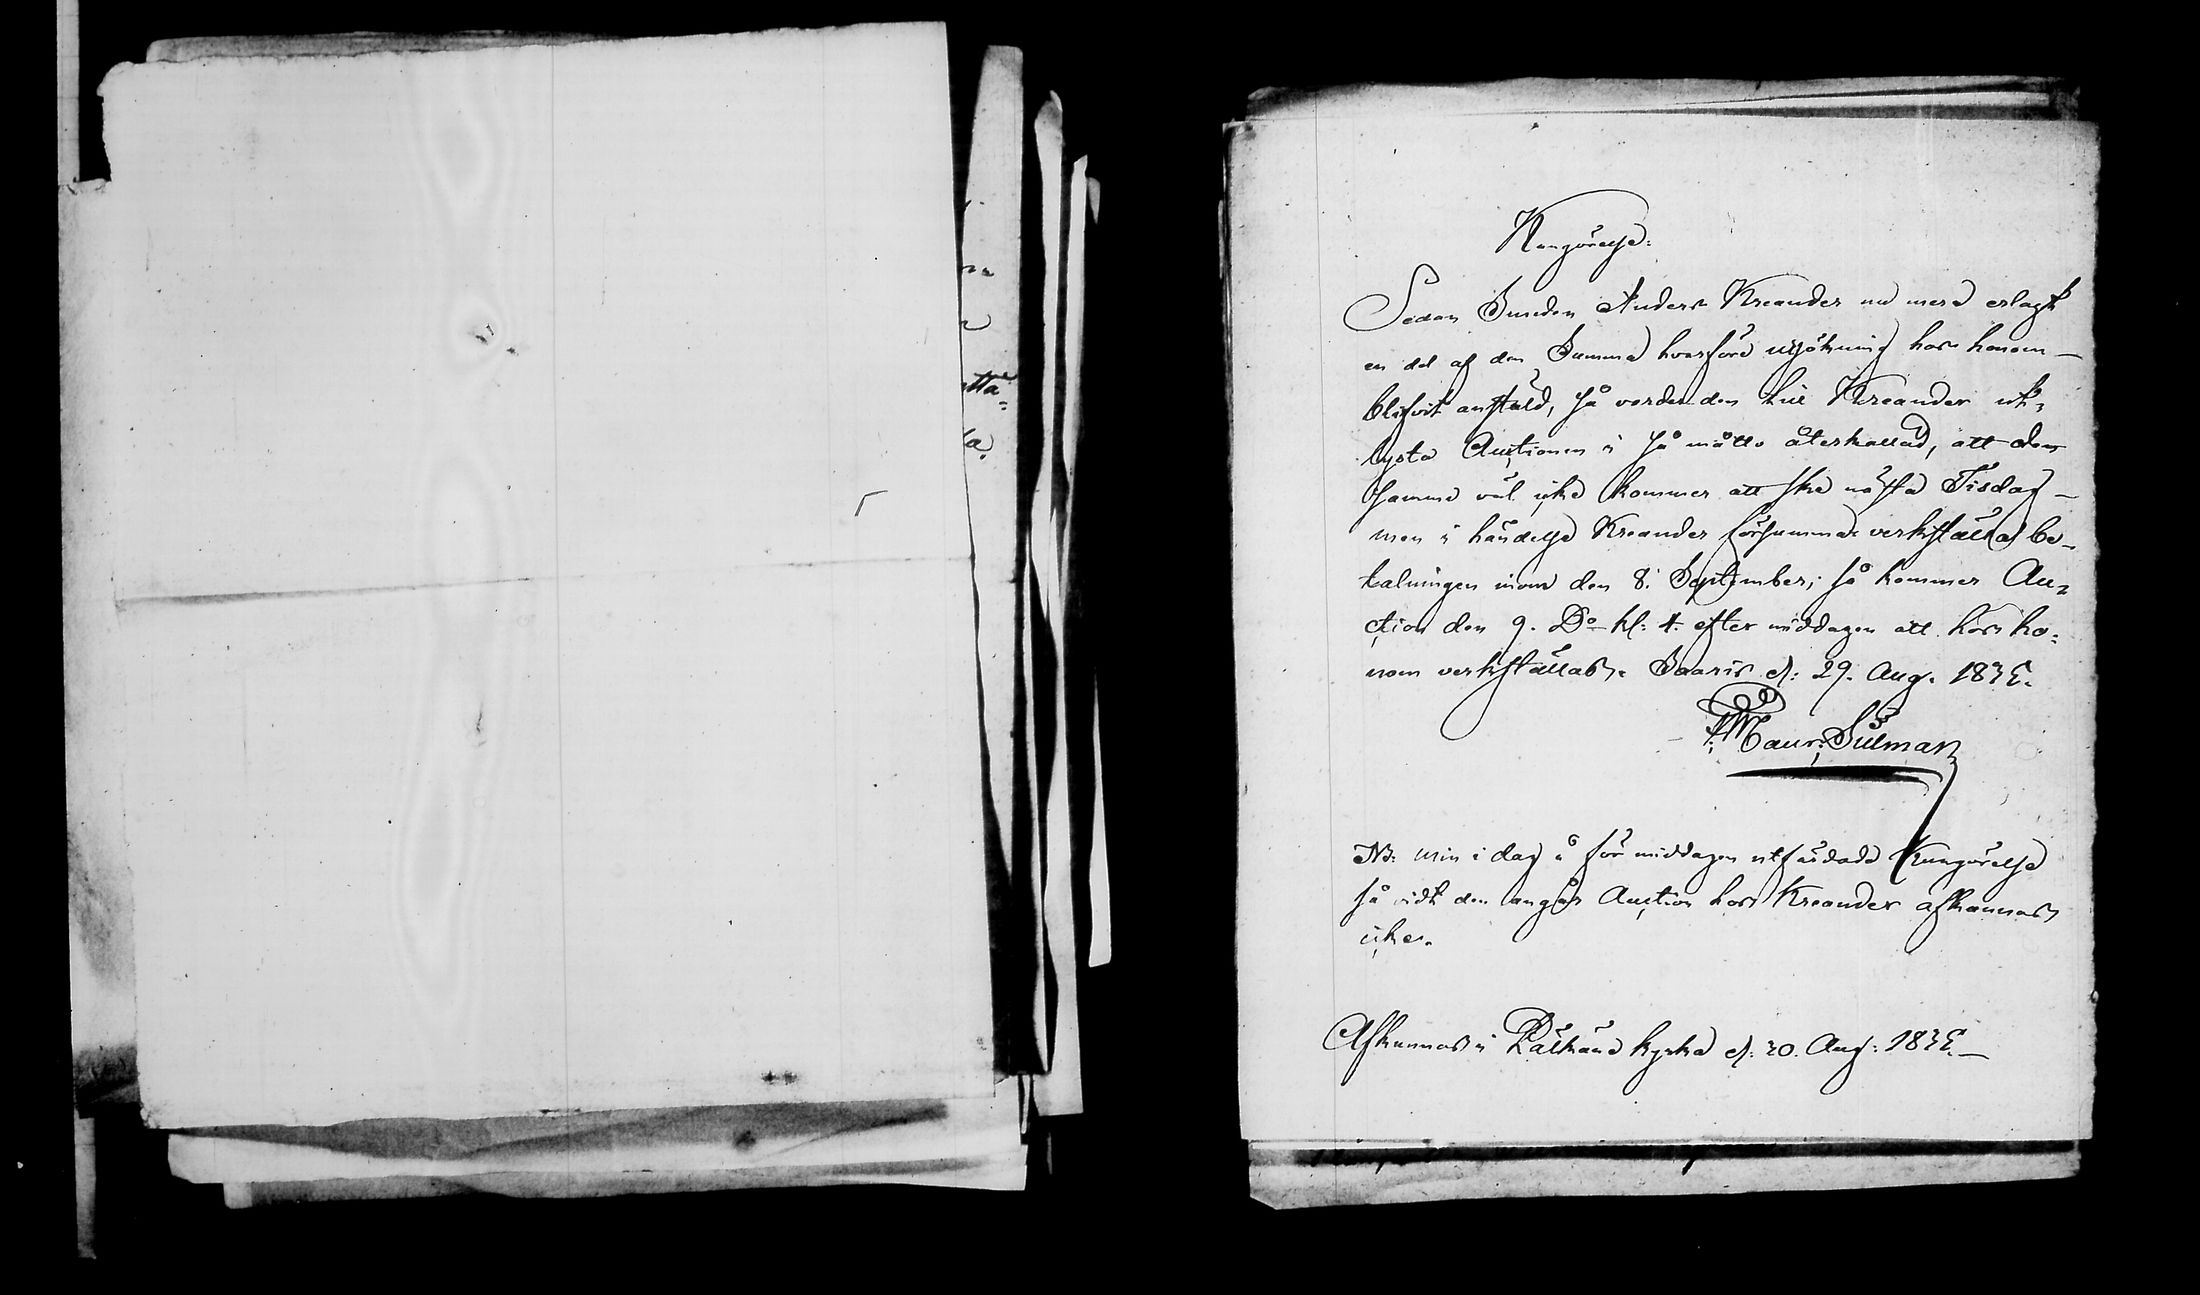 Kungörelse:
Sedan Smeden Anders Kreander nu mera erlagt
en del af den Summa hvarföre utsökning hos honom
blifvit anstäld, så varder den hos Kreander ut-
lysta Auctionen i så måtto återkallad, att den
samma väl icke kommer att ske nästa Tisdag -
men i händelse Kreander försummar verkställa be-
talningen inom den 8. September, så kommer Au-
ction den 9. Do kl: 4. efter middagen att hos ho-
nom verkställas. Saaris d: 29. Aug. 1835.
Silman
NB: Min i dag å för middagen utfärdade Kungörelse
så vidt den angår Auction hos Kreander afkunnas
icke.
Afkunnad i Pälkäne kyrka d: 30. Aug: 1835. -
ttä-